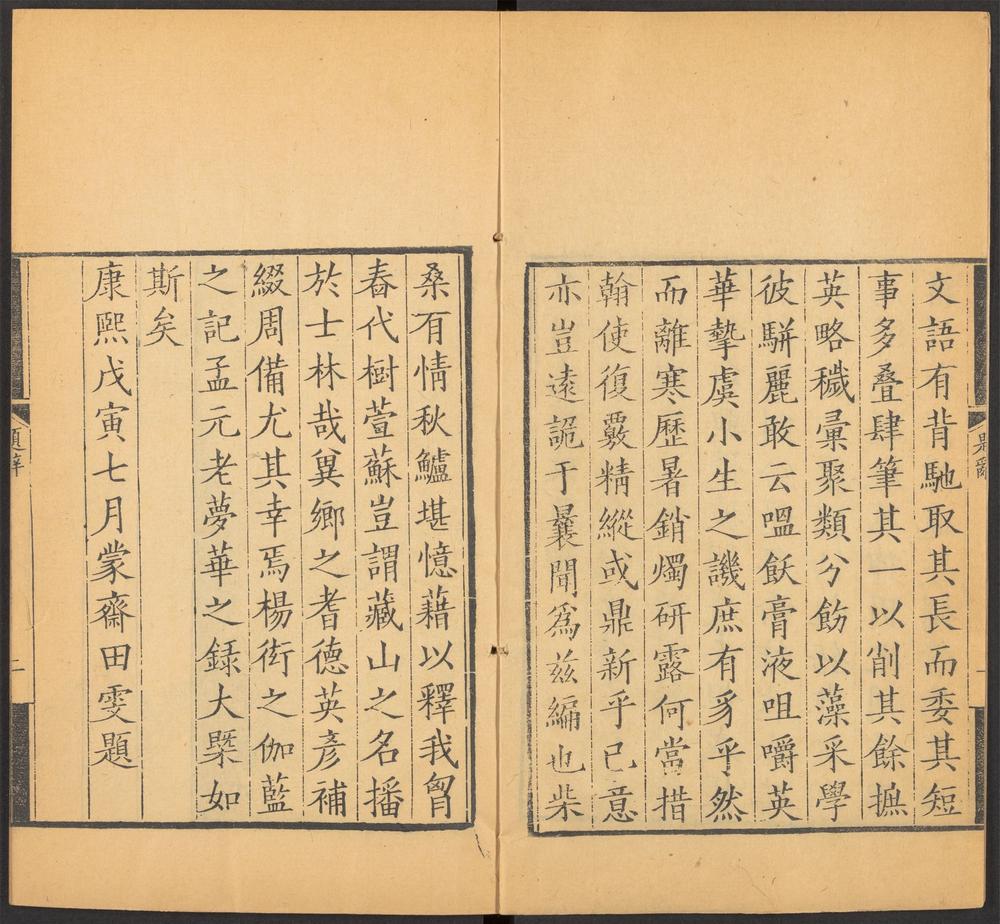 文語有背馳取其長而委其短
事多疊肆筆其一以削其餘摭
英略穢彙聚類分飭以藻采學
彼駢麗敢云嗢飫膏液咀嚼英
華摯虞小生之譏庶有豸乎然
而離寒歷暑銷燭研露何當措
翰使復覈精縱或鼎新乎己意
亦豈遠詭于曩聞為茲編也柴
題辭
一
桑有情秋鱸堪憶藉以釋我胷
春代樹萱蘇豈謂藏山之名播
於士林哉異鄉之耆德英彥補
綴周備尤其幸焉楊衒之伽藍
之記孟元老夢華之錄大槩如
斯矣
康熙戊寅七月蒙齋田雯題
題辭
二